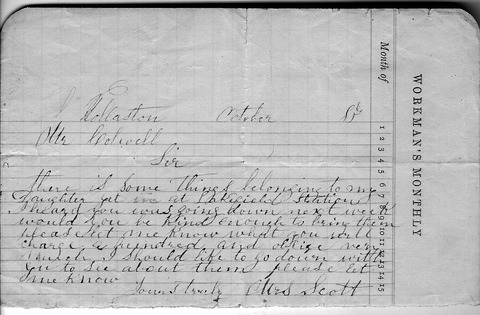 Wollaston October 8th
Mr Colwell
Sir
there is some things belonging to my
daughter yet in at Station
I heard you was going down next week
would you be kind enough to bring them
please let me know what you will
charge a hundred and oblige very
much I should like to go down with
you to see about them please let
me know
yours truly Mrs Scott
WORKMAN'S MONTHLY
Month of
1 2 3 4 5 6 7 8 9 10 11 12 13 14 15